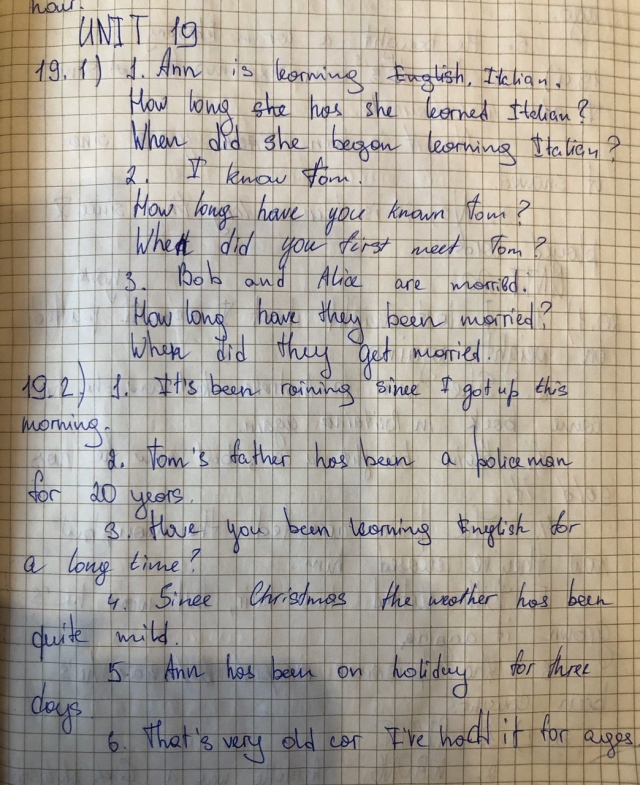 hour.
UNIT 19
19.1) 1. Ann is learning English, Italian.
How long she has she learned Italian?
When did she began learning Italian?
2. I know Tom.
How long have you known Tom?
When did you first meet Tom?
3. Bob and Alice are married.
How long have they been married?
When did they get married.
19.2) 1. It's been raining since I got up this
morning.
2. Tom's father has been a policeman
for 20 years.
3. Have you been learning English for
a long time?
4. Since Christmas the weather has been
quite mild.
5. Ann has been on holiday for three
days
6. That's very old car I've had it for ages